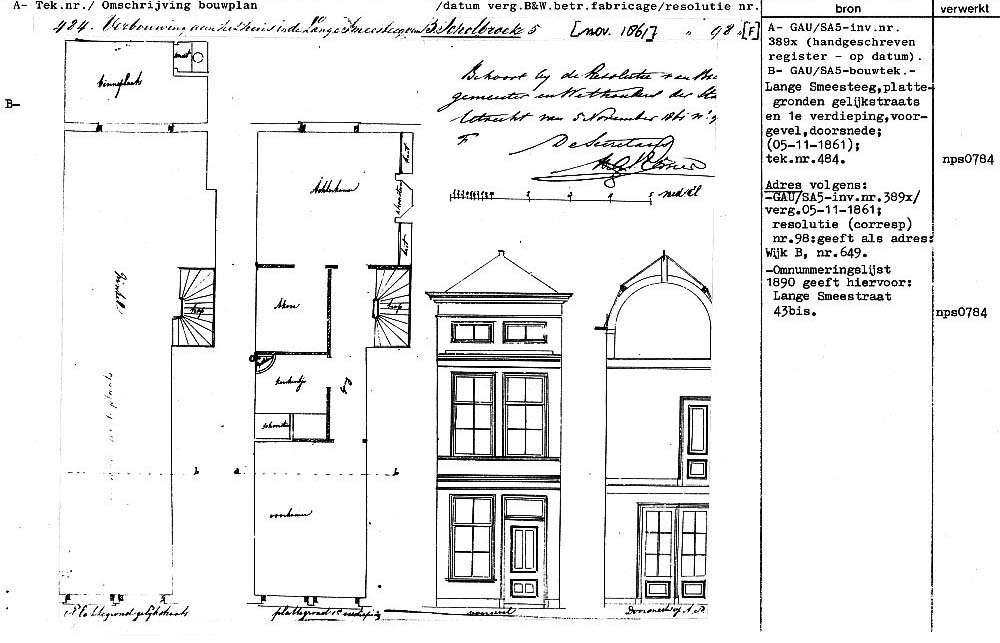 A- Tek.nr./ Omschrijving bouwplan /datum verg.B&W.betr.fabricage/resolutie nr.
bron
verwerkt
484. Verbouwing aan het huis in de Lange Smeesteeg van B. Scholbroek 5 [nov. 1861] " 98 [F]
B-
Behoort bij de Resolutie van Bur
gemeester en Wethouders der Sta
Utrecht van 5 November 1861 nº 9
F
De Secretaris
ned. el
binneplaats
Achterkamer
kast
schoorsteen
kast
Winkel
trap
Alkoof
trap
keukentje
voorkamer
b
a
b
Plattegrond gelijkstraats
plattegrond 1e verdieping
voorgevel
Doorsnede of A.B.
A- GAU/SA5-inv.nr.
389x (handgeschreven
register - op datum).
B- GAU/SA5-bouwtek.-
Lange Smeesteeg,platte-
gronden gelijkstraats
en 1e verdieping,voor-
gevel,doorsnede;
(05-11-1861);
tek.nr.484.
nps0784
Adres volgens:
-GAU/SA5-inv.nr.389x/
verg.05-11-1861;
resolutie (corresp)
nr.98:geeft als adres:
Wijk B, nr.649.
-Omnummeringslijst
1890 geeft hiervoor:
Lange Smeestraat
43bis.
nps0784